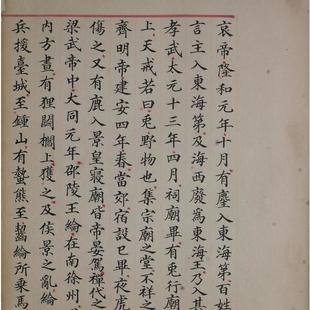 哀帝隆和元年十月有麈入東海第百姓
言主入東海第及海西廢爲東海王乃入其
孝武太元十三年四月祠廟畢有兎行廟
上天戒若曰兎野物也集宗廟之堂不祥之
齊明帝建安四年春當郊宿設已畢夜虎
傷之又有鹿入景皇寢廟皆帝晏駕禪代之
梁武帝中大同元年邵陵王綸在南徐州
內方晝有狸鬭櫩上獲之及侯景之亂綸
兵援臺城至鍾山有蟄熊至齧綸所乘馬